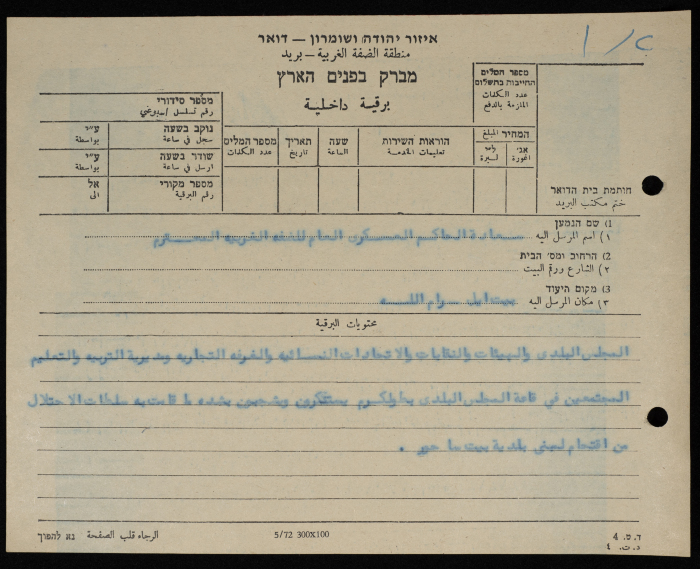 איזור יהודה ושומרון — דואר
منطقة الضفة الغربية — بريد
מברק בפנים הארץ
برقية داخلية
מספר המלים
החייבות בתשלום
عدد الكلمات
الملزمة بالدفع
מספר סידורי
رقم تسلسل
נוקב בשעה ע״י
سجل في ساعة بواسطة
שודר בשעה ע״י
ارسل في ساعة بواسطة
מספר מקורי אל
رقم البرقية الى
מספר המלים
عدد الكلمات
תאריך
تاريخ
שעה
الساعة
הוראות השירות
تعليمات الخدمة
המחיר المبلغ
ל״י
ليرة
אג׳
اغورة
חותמת בית הדואר
ختم مكتب البريد
1) שם הנמען
١) اسم المرسل اليه سعادة الحاكم العسكري العام للضفه الغربيه المحترم
2) הרחוב ומס׳ הבית
٢) الشارع ورقم البيت
3) מקום היעוד
٣) مكان المرسل اليه بيت ايل - رام الله
محتويات البرقية
المجلس البلدي والهيئات والنقابات والاتحادات النسائيه والغرفه التجاريه ومديرية التربيه والتعليم
المجتمعين في قاعة المجلس البلدي بطولكرم يستنكرون ويشجبون بشده ما قامت به سلطات الاحتلال
من اقتحام لمبنى بلدية بيت ساحور .
ד. ט. 4
د. ت. 4
5/72 300X100
الرجاء قلب الصفحة נא להפוך